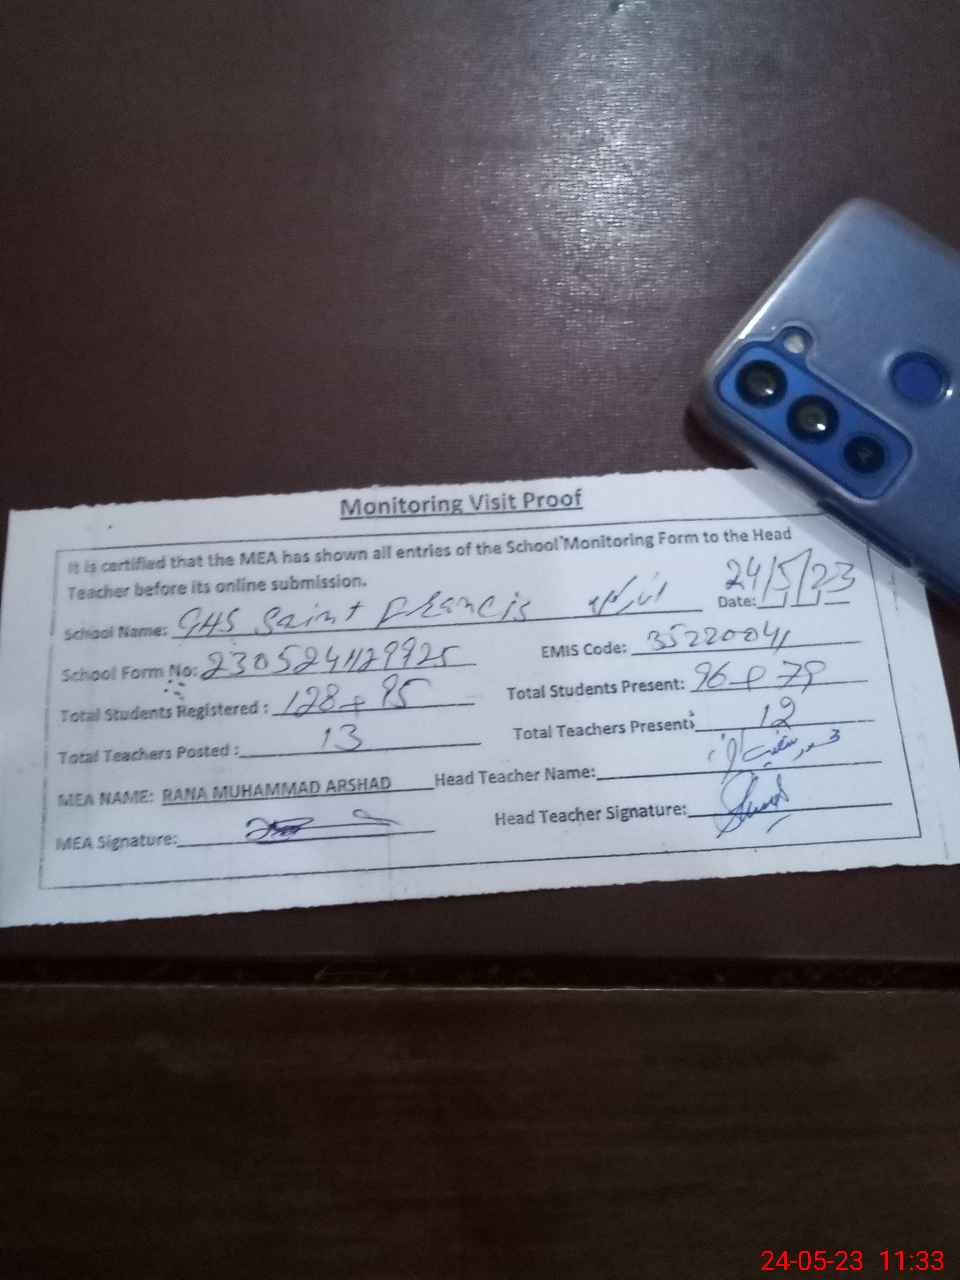 Monitoring Visit Proof
It is certified that the MEA has shown all entries of the School Monitoring Form to the Head
Teacher before its online submission.
School Name: GHS Saint Francis انارکلی Date: 24/5/23
School Form No: 2305241129925 EMIS Code: 35220041
Total Students Registered : 128 + 85 Total Students Present: 96 + 79
Total Teachers Posted : 13 Total Teachers Present: 12
MEA NAME: RANA MUHAMMAD ARSHAD Head Teacher Name:
MEA Signature: Head Teacher Signature:
AI
24-05-23 11:33